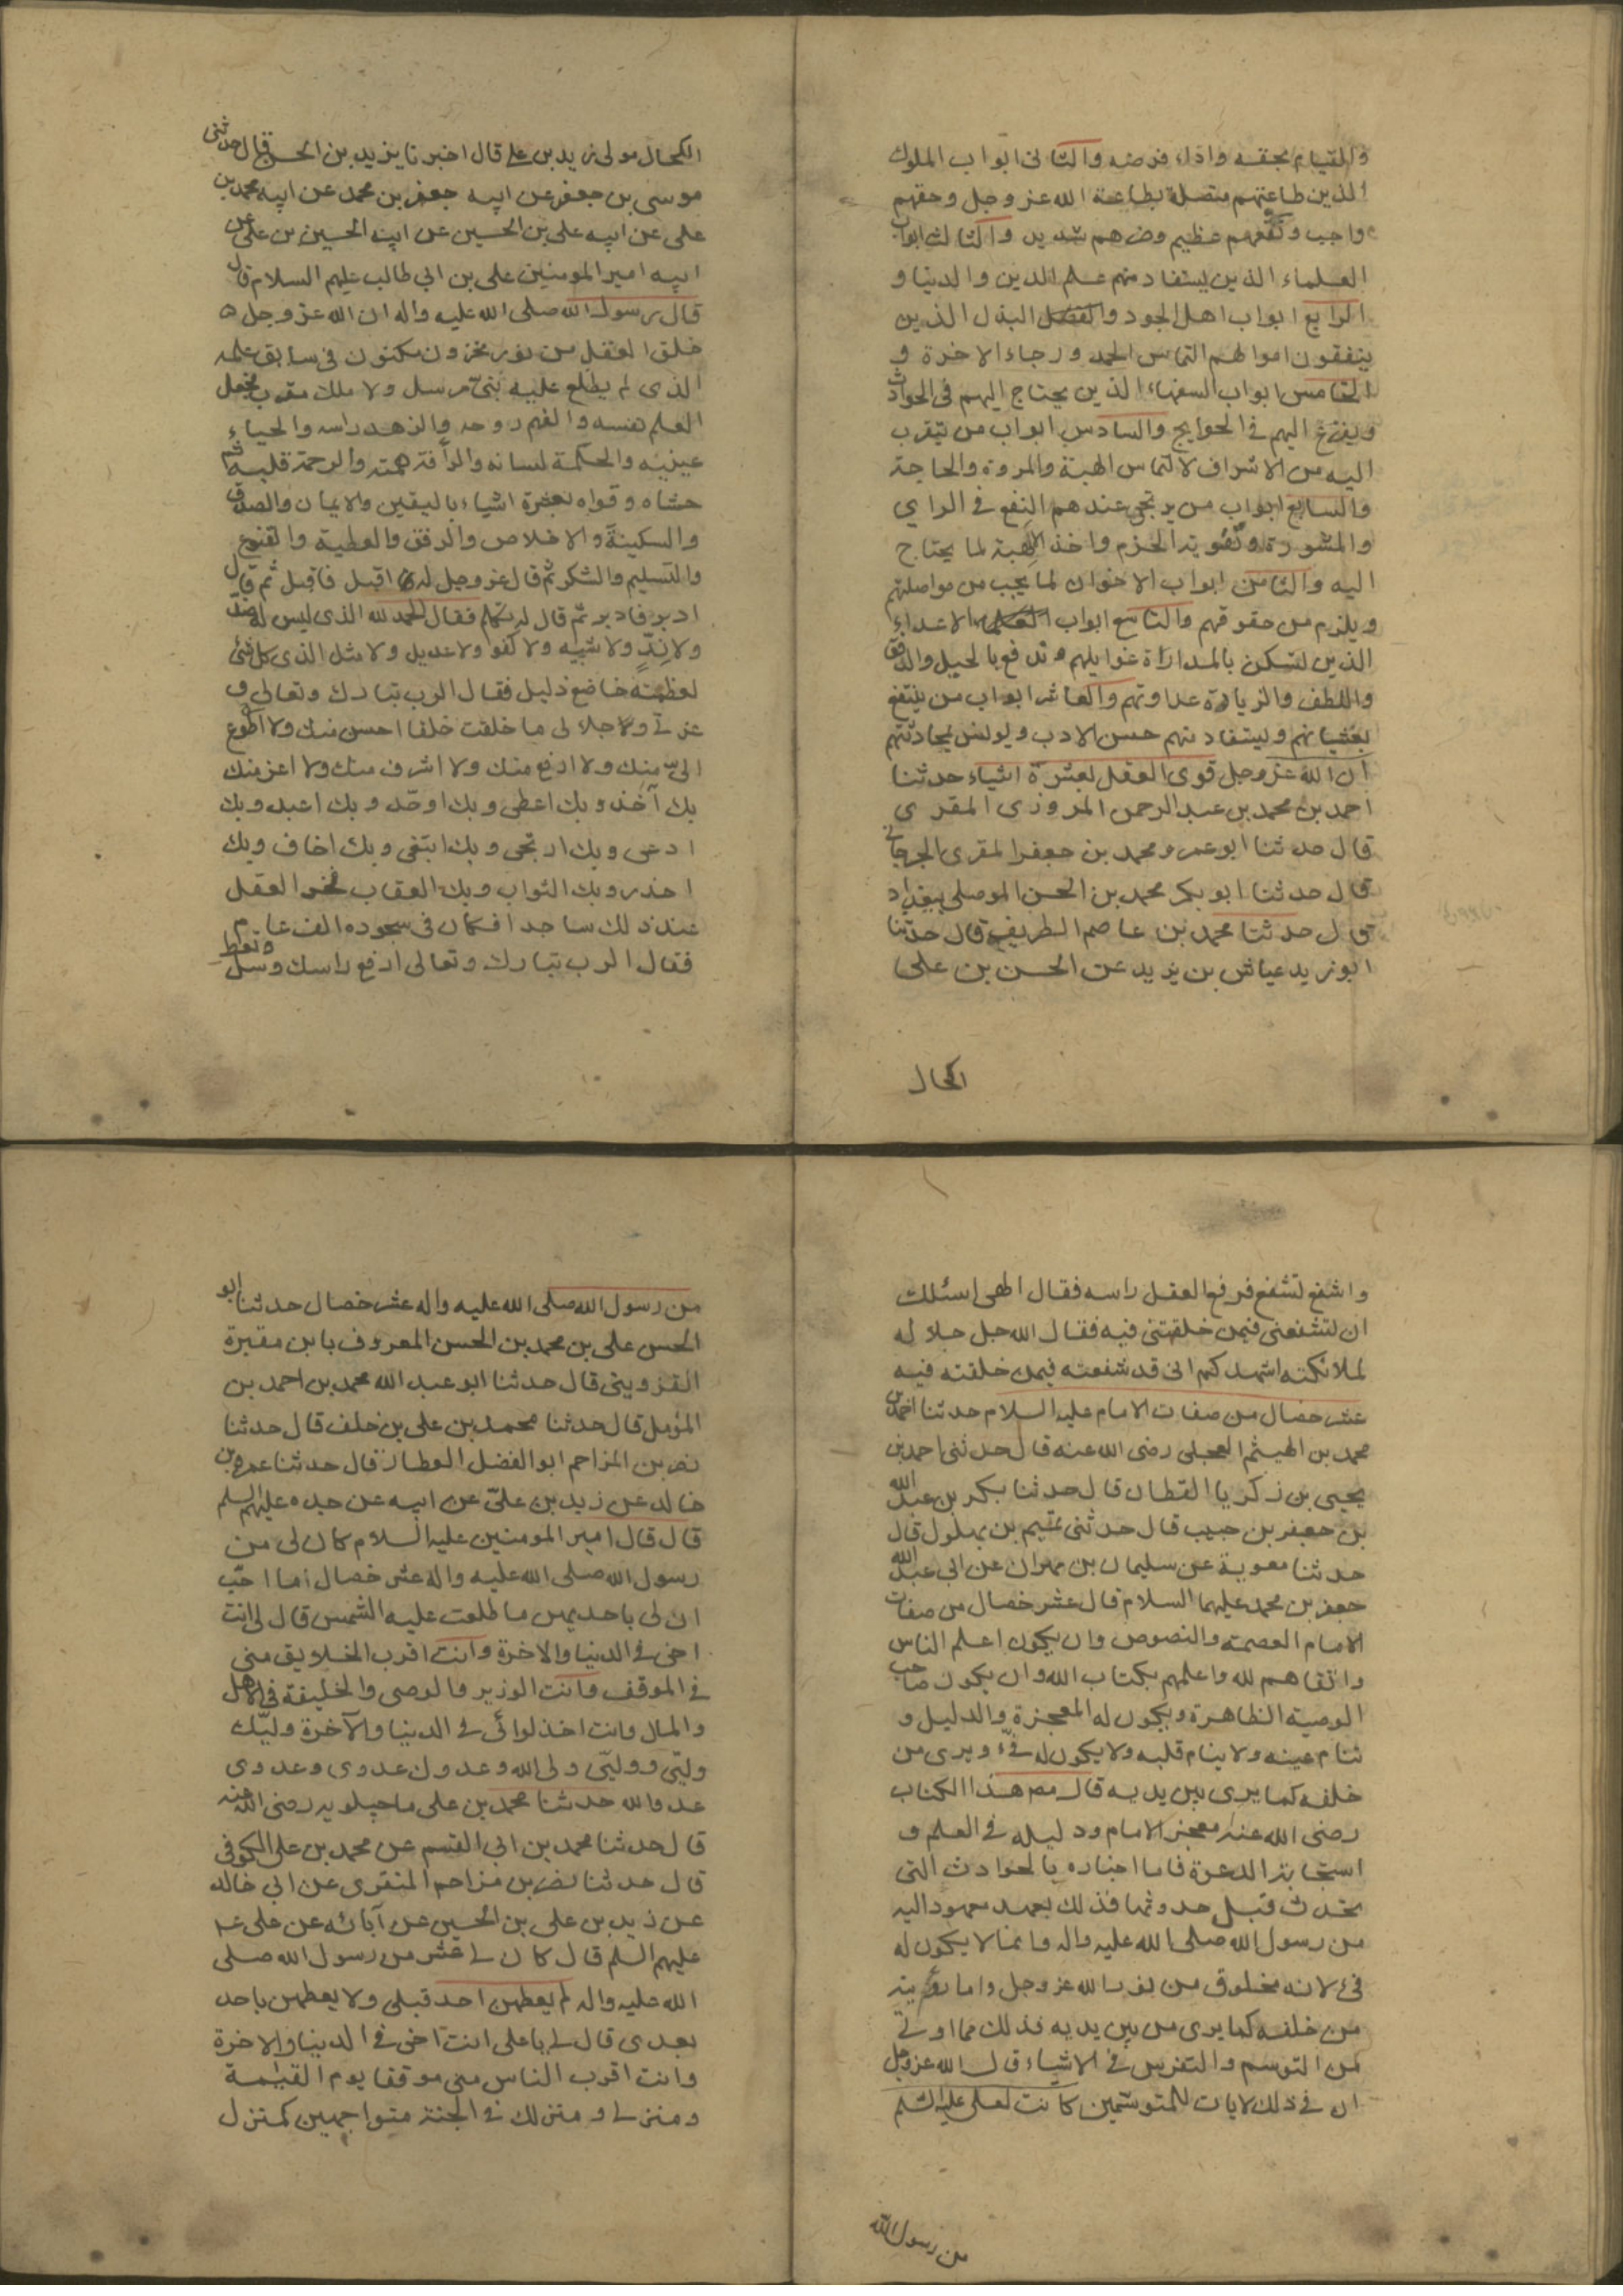 والقيام بحقه واداء فرضه والثانى ابواب الملوك
الذين طاعتهم متصلة بطاعة الله عز وجل وحقهم
واجب ونفعهم عظيم وضرهم شديد والثالث ابواب
العلماء الذين يستفاد منهم علم الدين والدنيا و
الرابع ابواب اهل الجود والبذل الذين
ينفقون اموالهم التماس الحمد ورجاء الاخرة و
الخامس ابواب السفهاء الذين يحتاج اليهم فى الحوادث
ويفزع اليهم فى الحوايج والسادس ابواب من يتقرب
اليه من الاشراف لالتماس الهبة والمروة والحاجة
والسابع ابواب من يرتجى عندهم النفع فى الراي
والمشورة وتقوية الحزم واخذ الاهبة لما يحتاج
اليه والثامن ابواب الاخوان لما يجب من مواصلتهم
ويلزم من حقوقهم والتاسع ابواب الاعداء
الذين تسكن بالمداراة غوايلهم وتدفع بالحيل والرفق
واللطف والزيارة عداوتهم والعاشر ابواب من ينتفع
بغشيانهم ويستفاد منهم حسن الادب ويونس بمحادثتهم
ان الله عز وجل قوى العقل بعشرة اشياء حدثنا
احمد بن محمد بن عبد الرحمن المروزى المقرى
قال حدثنا ابو عمرو محمد بن جعفر المقرى الجرجانى
قال حدثنا ابو بكر محمد بن الحسن الموصلى ببغداد
قال حدثنا محمد بن عاصم الطريفى قال حدثنا
ابو زيد عياش بن يزيد عن الحسن بن على
الكحال
الكحال مولى زيد بن على قال اخبرنا يزيد بن الحسن قال حدثنى
موسى بن جعفر عن ابيه جعفر بن محمد عن ابيه محمد بن
على عن ابيه على بن الحسين عن ابيه الحسين بن على عن
ابيه امير المومنين على بن ابى طالب عليهم السلام قال
قال رسول الله صلى الله عليه واله ان الله عز وجل
خلق العقل من نور مخزون مكنون فى سابق علمه
الذى لم يطلع عليه نبى مرسل ولا ملك مقرب فجعل
العلم نفسه والفهم روحه والزهد راسه والحياء
عينيه والحكمة لسانه والرأفة همته والرحمة قلبه ثم
حشاه وقواه بعشرة اشياء باليقين والايمان والصدق
والسكينة والاخلاص والرفق والعطية والقنوع
والتسليم والشكر ثم قال عز وجل له اقبل فاقبل ثم قال
ادبر فادبر ثم قال له تكلم فقال الحمد لله الذى ليس له ضد
ولا ند ولا شبيه ولا كفو ولا عديل ولا مثل الذى كل شئ
لعظمته خاضع ذليل فقال الرب تبارك وتعالى و
عزتى وجلالى ما خلقت خلقا احسن منك ولا اطوع
الى منك ولا ارفع منك ولا اشرف منك ولا اعز منك
بك آخذ وبك اعطى وبك اوحد وبك اعبد وبك
ادعى وبك ارتجى وبك ابتغى وبك اخاف وبك
احذر وبك الثواب وبك العقاب فخر العقل
عند ذلك ساجدا فكان فى سجوده الف عام
فقال الرب تبارك وتعالى ارفع راسك وسل وتعط
واشفع تشفع فرفع العقل راسه فقال الهى اسئلك
ان تشفعنى فيمن خلقتنى فيه فقال الله جل جلاله
لملائكته اشهدكم انى قد شفعته فيمن خلقته فيه
عشر خصال من صفات الامام عليه السلام حدثنا احمد بن
محمد بن الهيثم العجلى رضى الله عنه قال حدثنى احمد بن
يحيى بن زكريا القطان قال حدثنا بكر بن عبد الله
بن جعفر بن حبيب قال حدثنى تميم بن بهلول قال
حدثنا معوية عن سليمان بن مهران عن ابى عبد الله
جعفر بن محمد عليهما السلام قال عشر خصال من صفات
الامام العصمة والنصوص وان يكون اعلم الناس
واتقاهم لله واعلمهم بكتاب الله وان يكون صاحب
الوصية الظاهرة ويكون له المعجزة والدليل و
تنام عينه ولا ينام قلبه ولا يكون له فئ ويرى من
خلفه كما يرى بين يديه قال مص هذا الكتاب
رضى الله عنه معجز الامام ودليله فى العلم و
استجابة الدعوة فاما اخباره بالحوادث التى
تحدث قبل حدوثها فذلك بعهد معهود اليه
من رسول الله صلى الله عليه واله وانما لا يكون له
فئ لانه مخلوق من نور الله عز وجل واما رؤيته
من خلفه كما يرى من بين يديه فذلك مما اوتى
من التوسم والتفرس فى الاشياء قال الله عز وجل
ان فى ذلك لايات للمتوسمين كانت لعلى عليه السلم
من رسول الله
من رسول الله صلى الله عليه واله عشر خصال حدثنا ابو
الحسن على بن محمد بن الحسن المعروف بابن مقبرة
القزوينى قال حدثنا ابو عبد الله محمد بن احمد بن
المؤمل قال حدثنا محمد بن على بن خلف قال حدثنا
نصر بن المزاحم ابو الفضل العطار قال حدثنا عمرو بن
خالد عن زيد بن على عن ابيه عن جده عليهم السلم
قال قال امير المومنين عليه السلام كان لى من
رسول الله صلى الله عليه واله عشر خصال اما احب
ان لى باحديهن ما طلعت عليه الشمس قال لى انت
اخى فى الدنيا والاخرة وانت اقرب الخلايق منى
فى الموقف وانت الوزير والوصى والخليفة فى الاهل
والمال وانت اخذ لوائى فى الدنيا والآخرة وليك
وليى ووليى ولى الله وعدوك عدوى وعدوى
عدو الله حدثنا محمد بن على ماجيلويه رضى الله عنه
قال حدثنا محمد بن ابى القسم عن محمد بن على الكوفى
قال حدثنا نصر بن مزاحم المنقرى عن ابى خالد
عن زيد بن على بن الحسين عن آبائه عن على
عليهم السلم قال كان لى عشر من رسول الله صلى
الله عليه واله لم يعطهن احد قبلى ولا يعطهن باحد
بعدى قال لى يا على انت اخى فى الدنيا والاخرة
وانت اقرب الناس منى موقفا يوم القيمة
ومنزلى ومنزلك فى الجنة متواجهين كمنزل